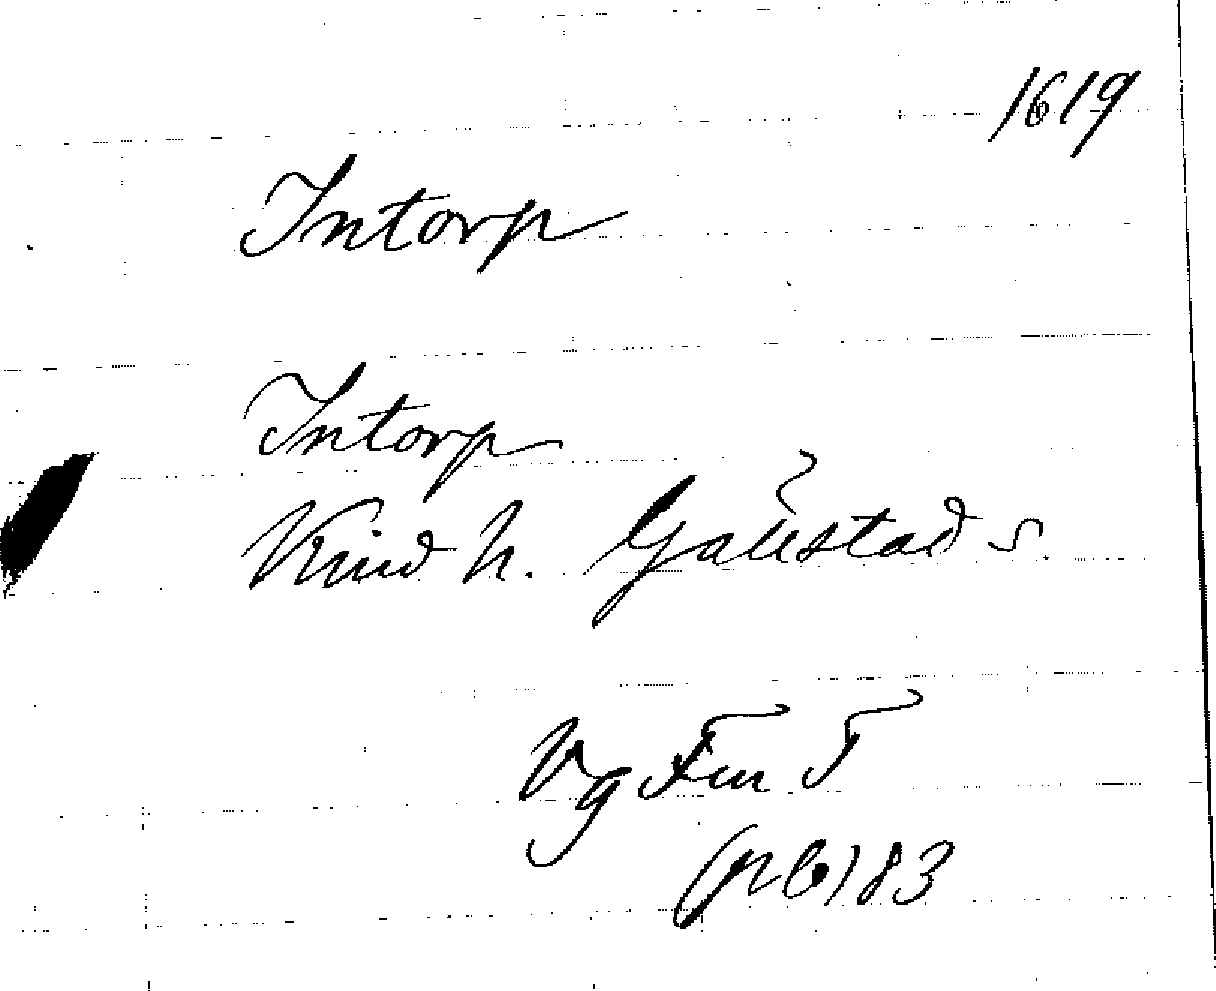 1619
Intorp
Intorp
Kind h. Gällstad s.
Vg
83